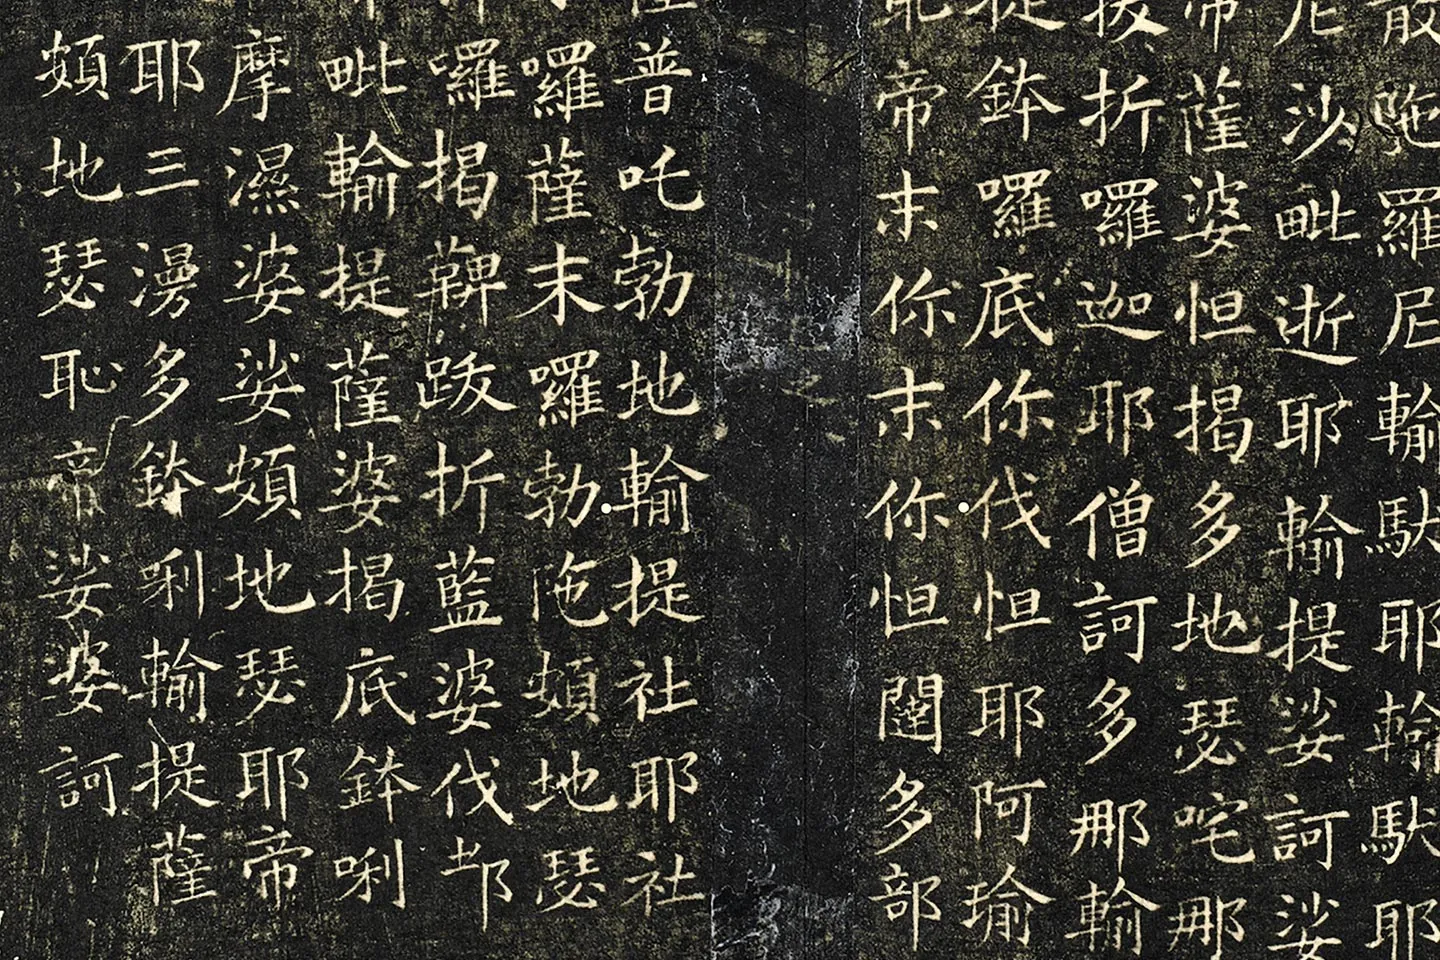 羅尼輸馱耶輸馱耶
尼沙毗逝耶輸提娑訶娑
帝薩婆怛揭多地瑟咤那
拔折囉迦耶僧訶多那輸
提鉢囉底你伐怛耶阿瑜
帝末你末你怛闥多部
普吒勃地輸提社耶社
囉薩末囉勃陁頞地瑟
囉揭鞞跋折藍婆伐
毗輸提薩婆揭底鉢唎
摩濕娑娑頞地瑟耶帝
耶三漫多鉢唎輸提薩
頞地瑟恥帝娑婆訶